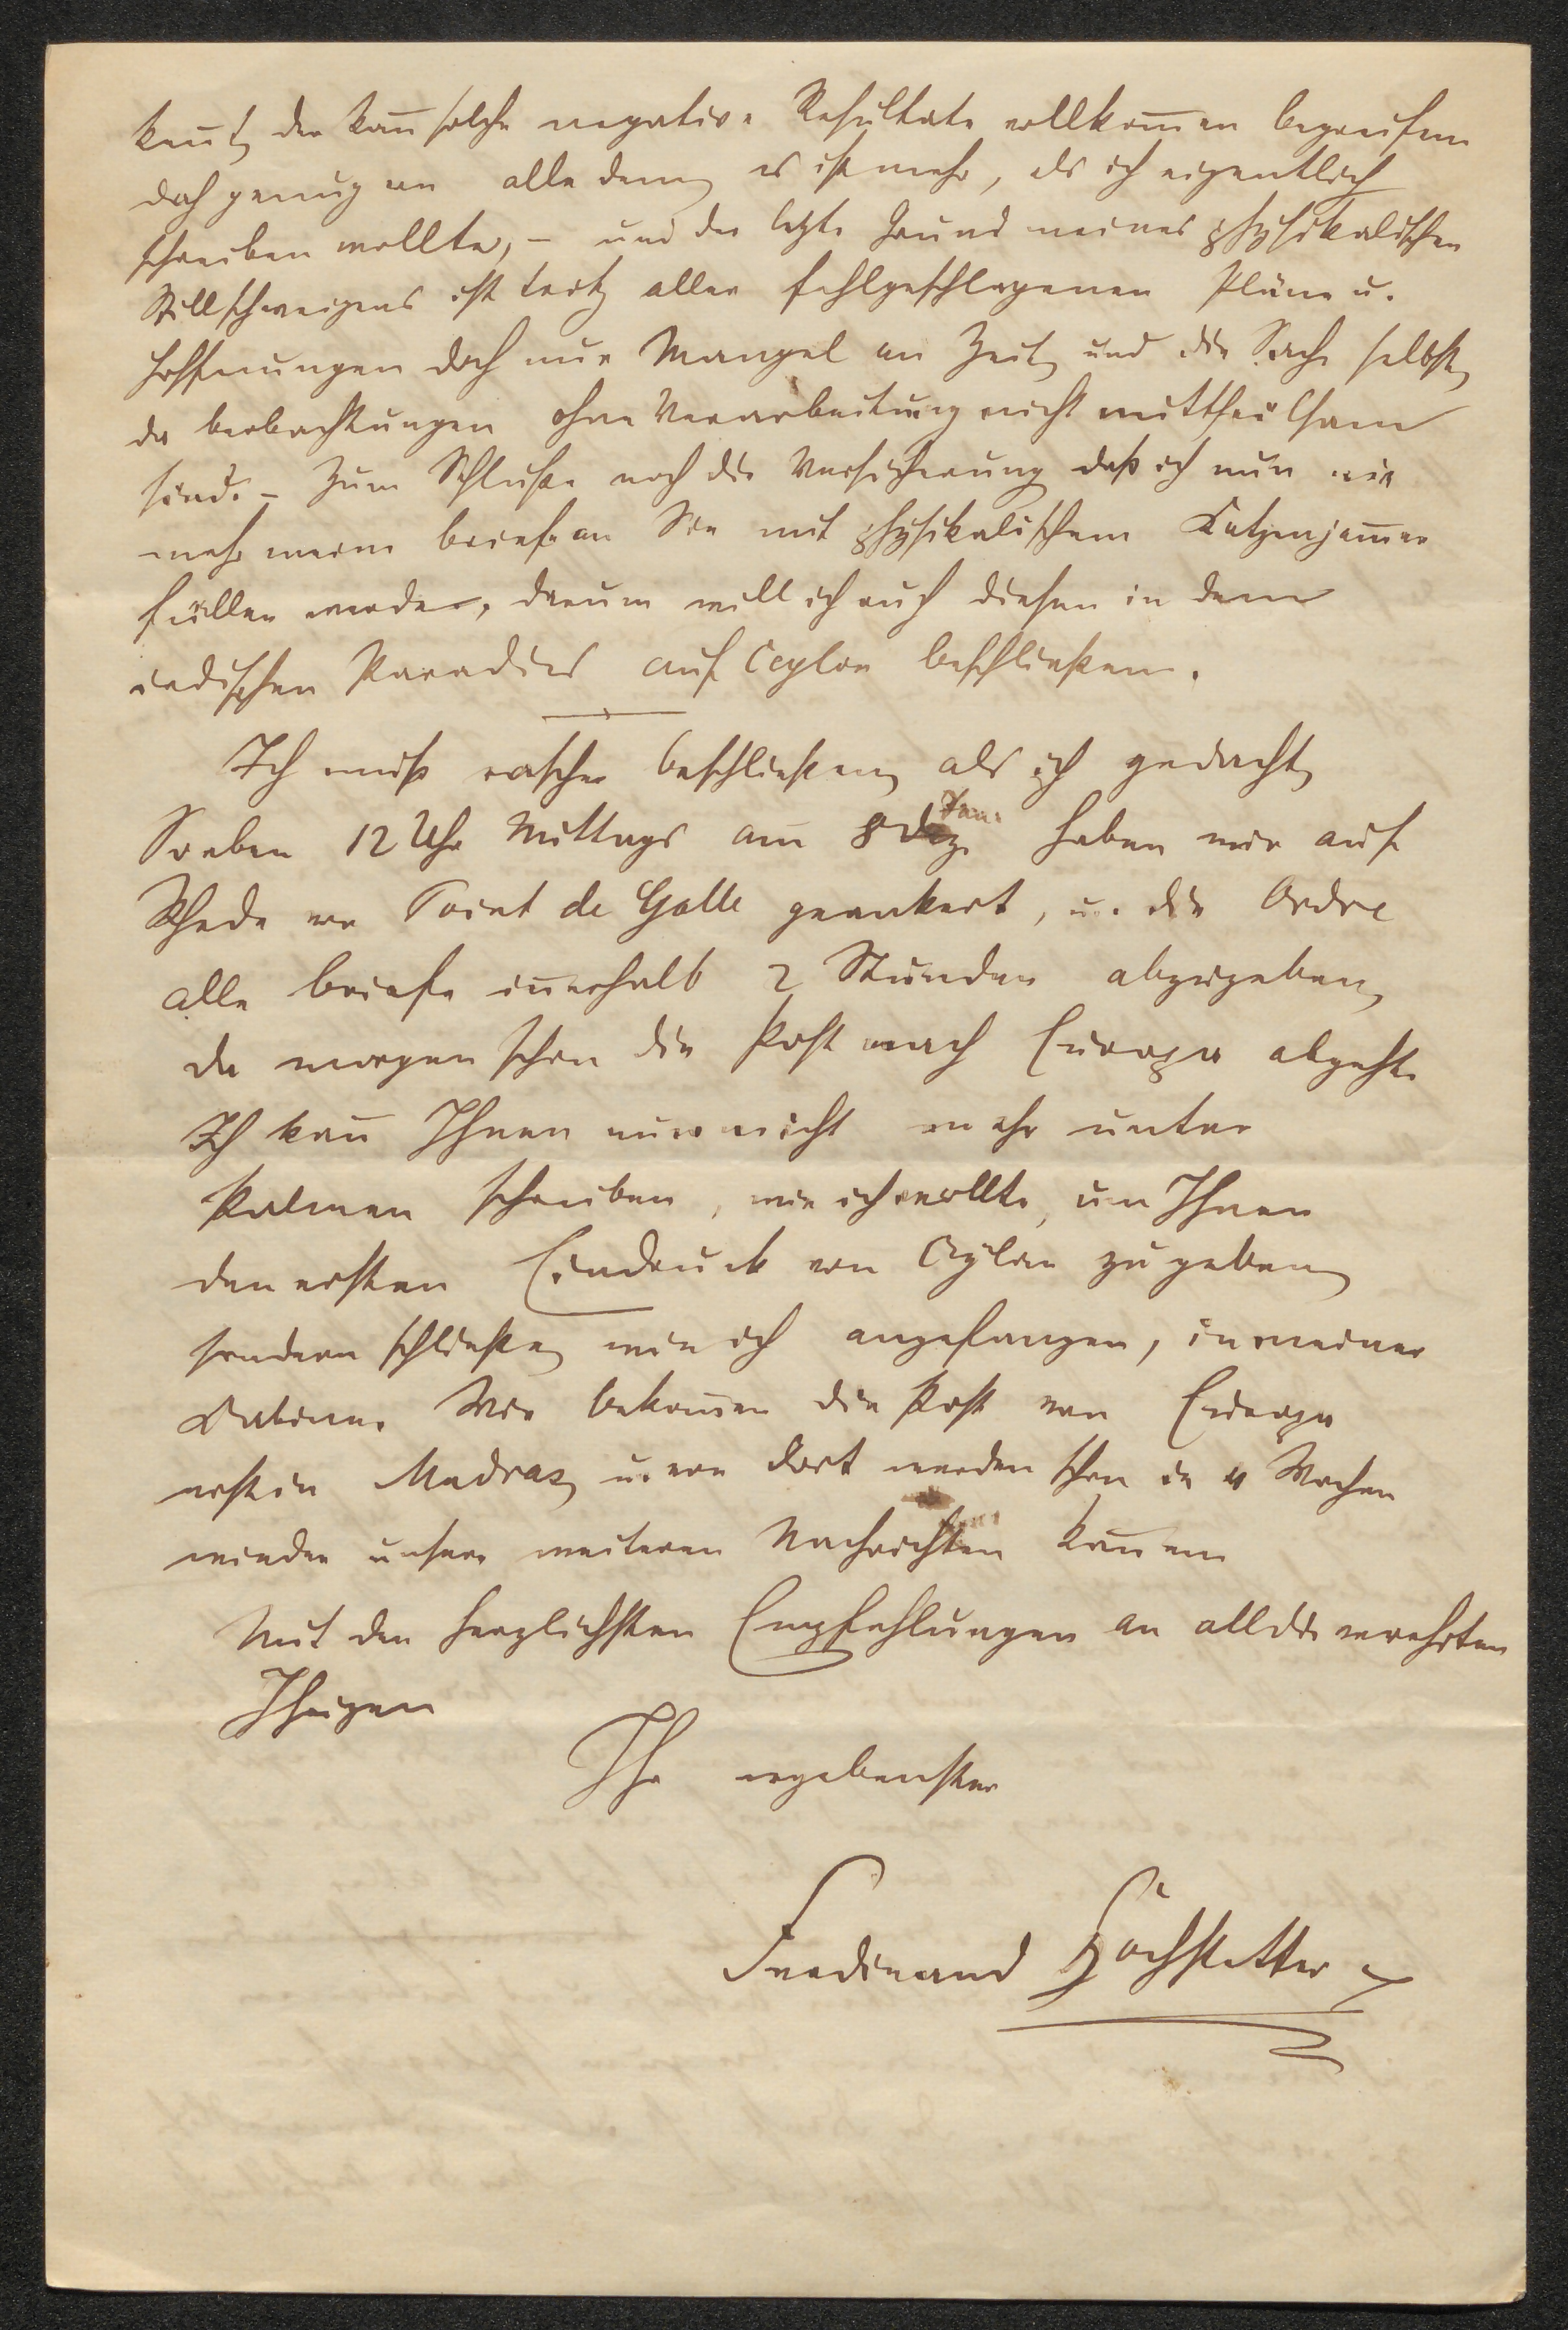 kennt, der kan̄ solche negative Resultate vollkom̄en begreifen
doch genug von alle dem, es ist mehr, als ich eigentlich
schreiben wollte, – und der letzte Grund meines physikalischen
Stillschweigens ist trotz aller fehlgeschlagenen Pläne u.
Hoffnungen doch nur Mangel an Zeit, und die Sache selbst,
da Beobachtungen ohne Verarbeitung nicht mittheilsam
sind. – Zum Schluße noch die Versicherung daß ich nun nie
mehr meine Briefe an Sie mit physikalischem Katzenjam̄er
füllen werde, darum will ich auch diesen in dem
indischen Paradies auf Ceylon beschließen.
Ich muß rascher beschließen, als ich gedacht,
Soeben 12 Uhr Mittags am 8 Jan. haben wir auf
Rhede von Point de Galle geankert, u. die Ordre
alle Briefe in̄erhalb 2 Stunden abzugeben,
da morgen schon die Post nach Europa abgeht.
Ich kan̄ Ihnen nun nicht mehr unter
Palmen schreiben, wie ich wollte, um Ihnen
den ersten Eindruck von Ceylon zu geben,
sondern schließe, wie ich angefangen, in meiner
Cabine. Wir bekom̄en die Post von Europa
erst in Madras, u. von dort werden schon in 4 Wochen
wieder unsere weiteren Nachrichten kom̄en
Mit den herzlichsten Empfehlungen an all die verehrten
Ihrigen
Ihr ergebenster
Ferdinand Hochstetter